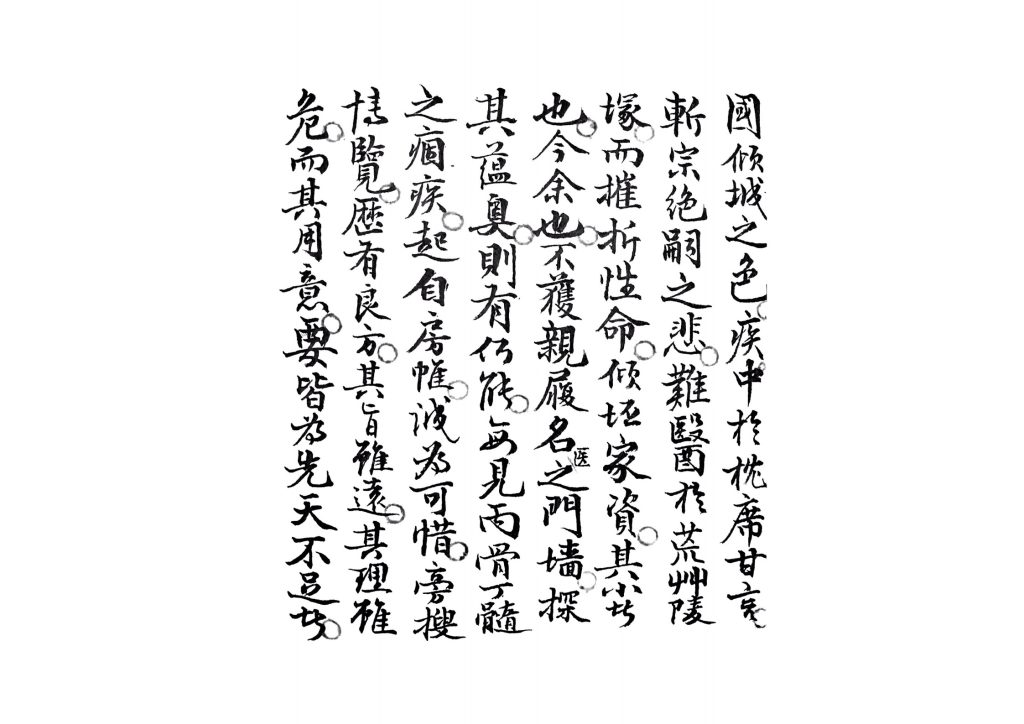 國傾城之色疾中於枕席甘
斬宗絶嗣之悲難醫於荒艸陵
塚而摧折性命傾坯家資其小者
也今余也不獲親履名医之門墙探
其蘊奧則有仍能每見丙骨丁髓
之痼疾起自房帷誠為可惜旁搜
博覽歷有良方其旨雖遠其理雖
危而其用意要皆為先天不足者